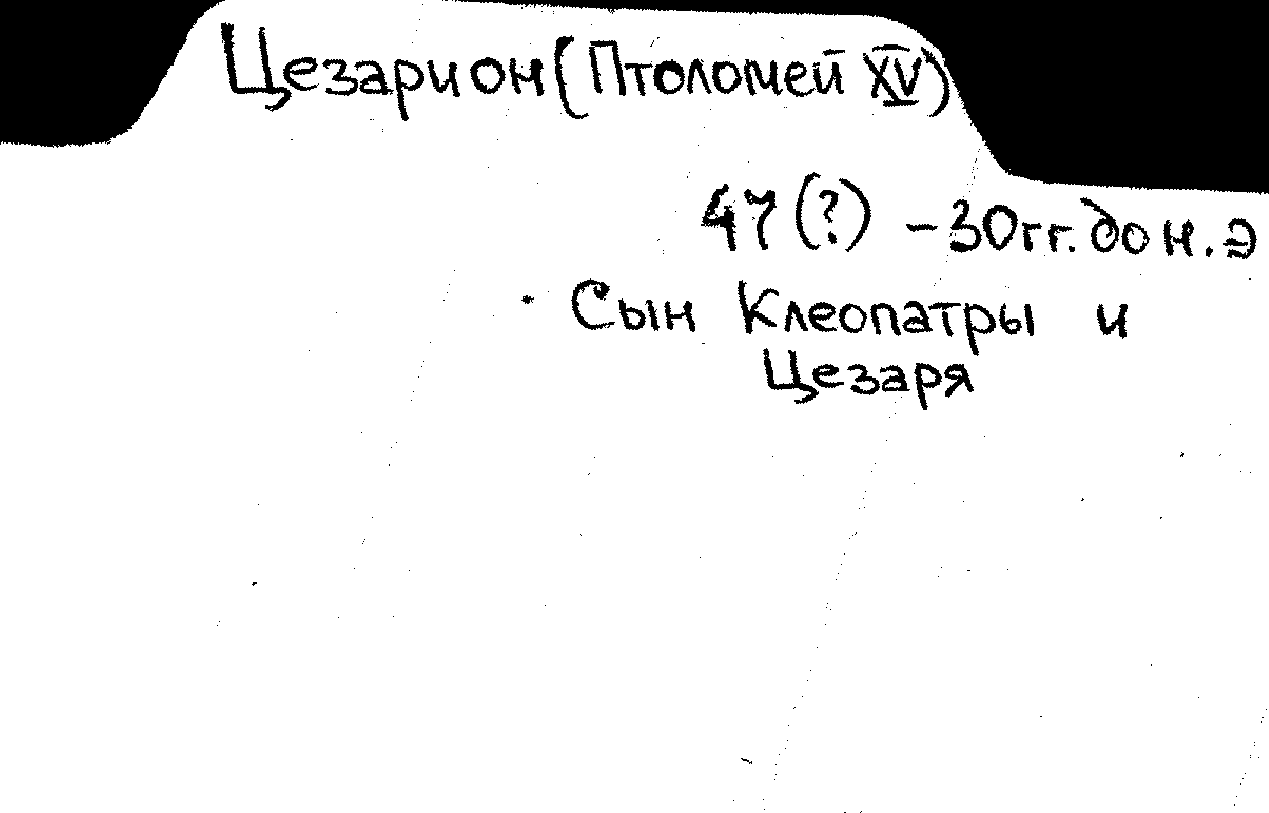 Цезарион (Птоломей XV)
47(?) - 30гг. до н.э
· Сын Клеопатры и
Цезаря